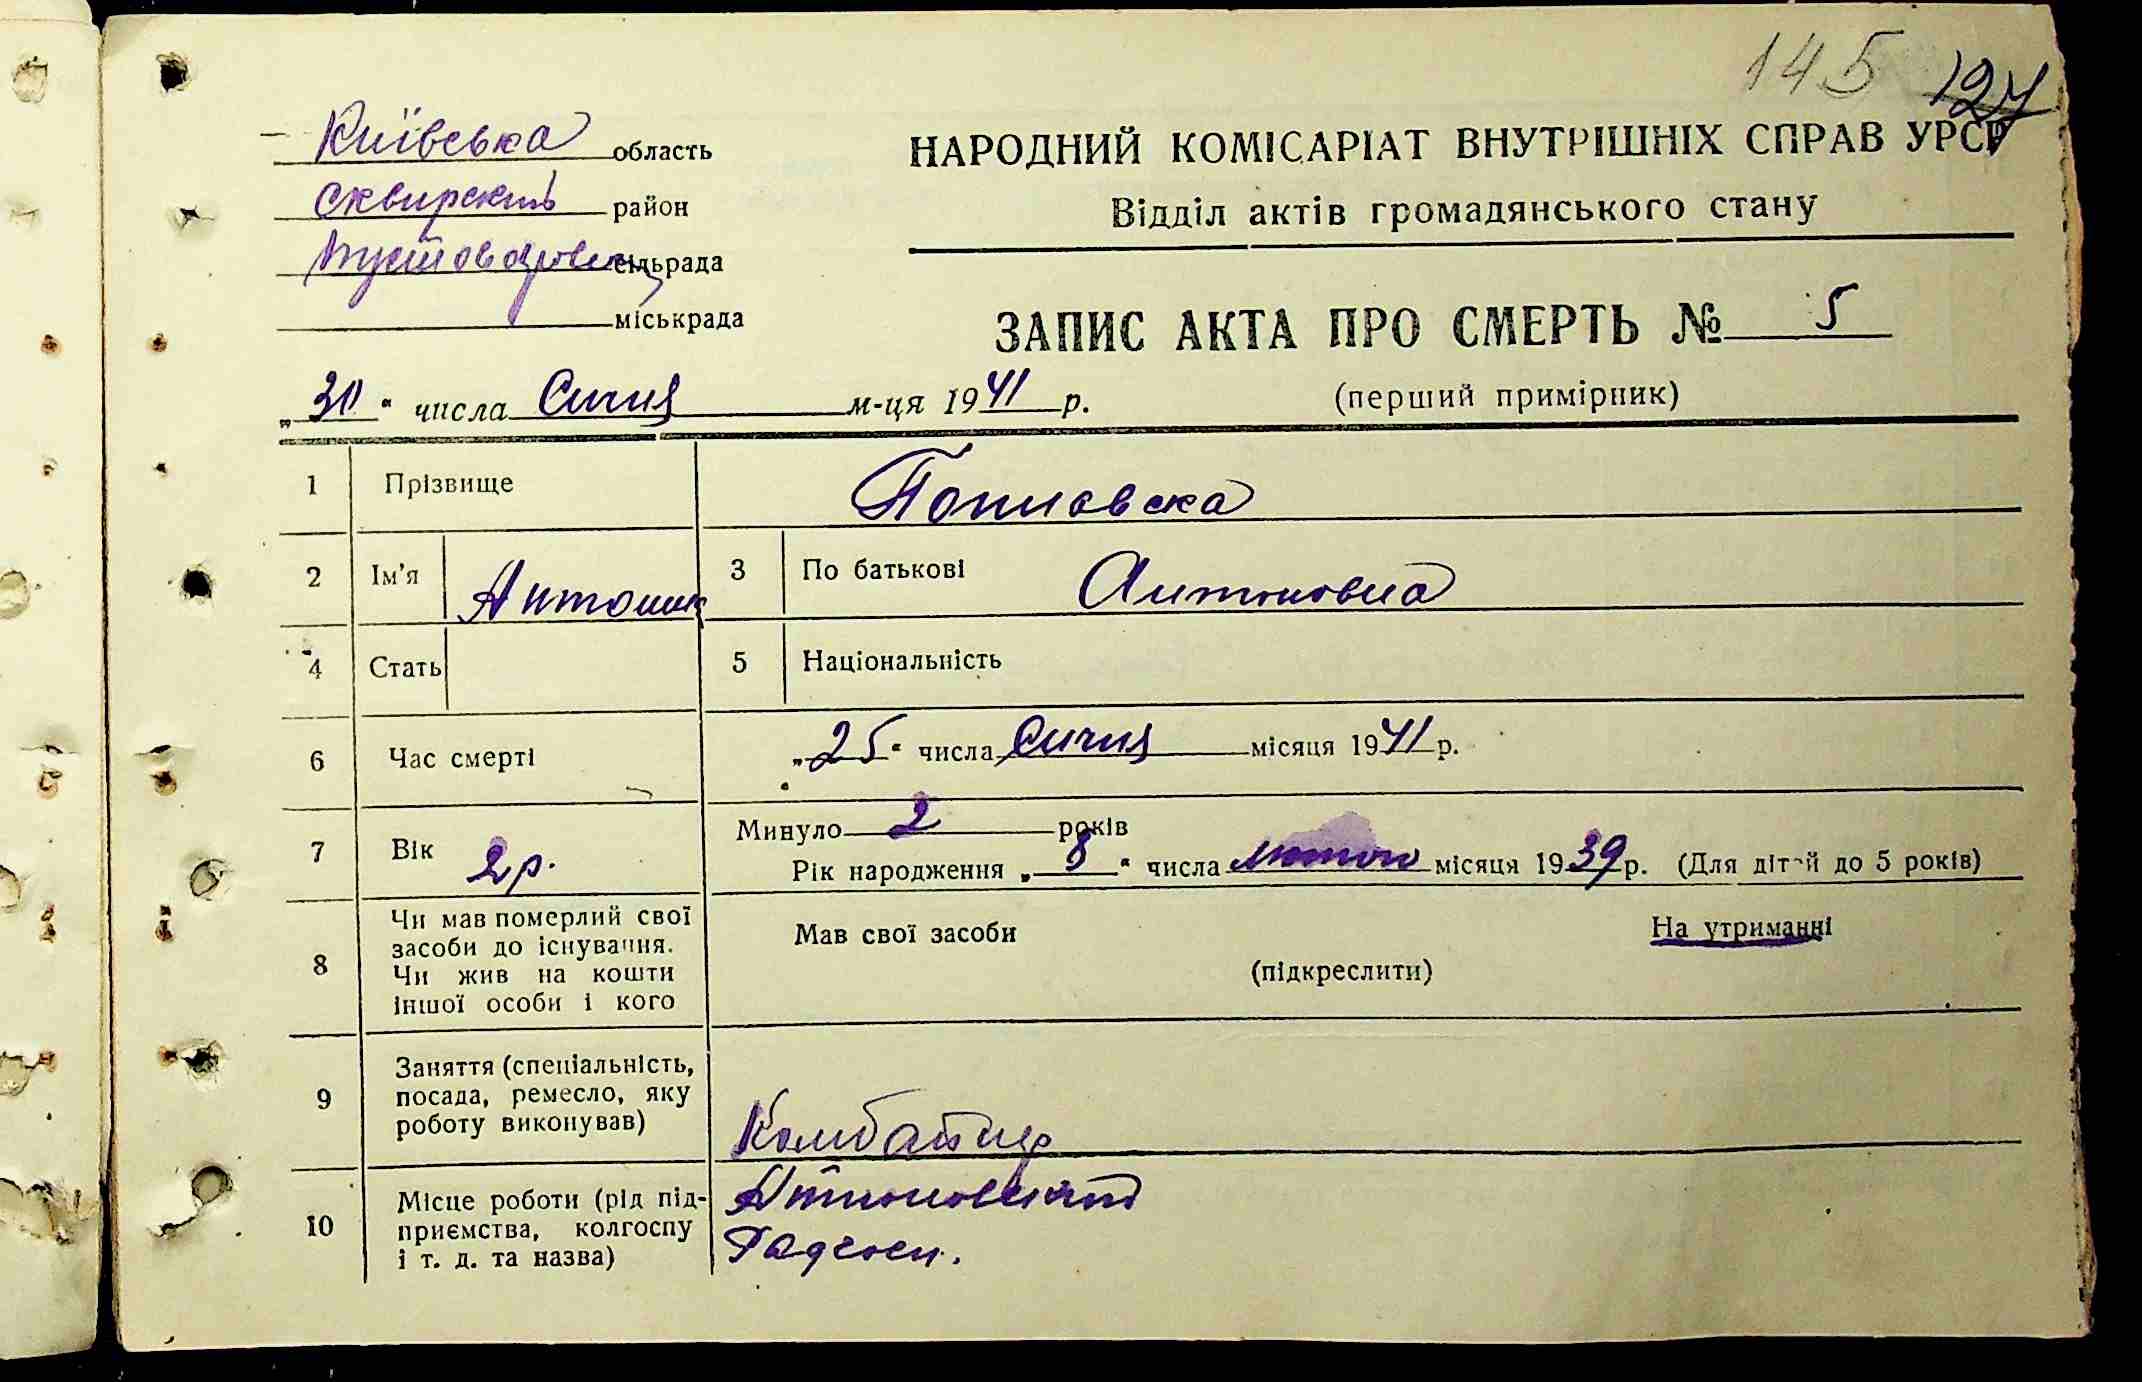 145 127
Київська область
НАРОДНИЙ КОМІСАРІАТ ВНУТРІШНІХ СПРАВ УРСР
Сквирський район
Відділ актів громадянського стану
сільрада
міськрада
ЗАПИС АКТА ПРО СМЕРТЬ № 5
(перший примірник)
„30“ числа Січня м-ця 1941 р.
1 Прізвище
2 Ім'я Антонина
3 По батькові Антоновна
4 Стать
5 Національність
6 Час смерті „25“ числа Січня місяця 1941 р.
7 Вік 2 р.
Минуло 2 років
Рік народження „8“ числа лютого місяця 1939 р. (Для дітей до 5 років)
8 Чи мав померлий свої
засоби до існування.
Чи жив на кошти
іншої особи і кого
Мав свої засоби
На утриманні
(підкреслити)
9 Заняття (спеціальність,
посада, ремесло, яку
роботу виконував)
Комбайнер
10 Місце роботи (рід під-
приємства, колгоспу
і т. д. та назва)
Радгосп.